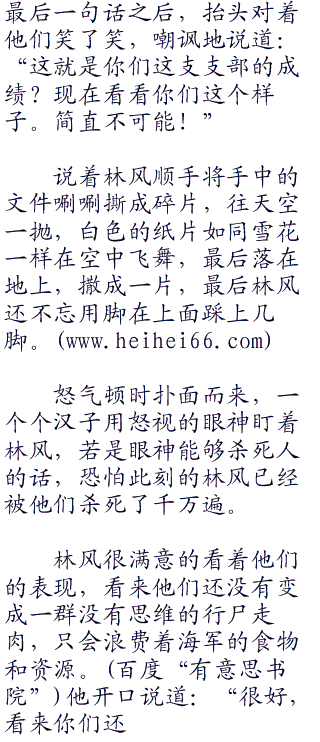 最后一句话之后，抬头对着
他们笑了笑，嘲讽地说道：
“这就是你们这支支部的成
绩？现在看看你们这个样
子。简直不可能！”
说着林风顺手将手中的
文件唰唰撕成碎片，往天空
一抛，白色的纸片如同雪花
一样在空中飞舞，最后落在
地上，撒成一片，最后林风
还不忘用脚在上面踩上几
脚。(www.heihei66.com)
怒气顿时扑面而来，一
个个汉子用怒视的眼神盯着
林风，若是眼神能够杀死人
的话，恐怕此刻的林风已经
被他们杀死了千万遍。
林风很满意的看着他们
的表现，看来他们还没有变
成一群没有思维的行尸走
肉，只会浪费着海军的食物
和资源。(百度“有意思书
院”)他开口说道：“很好，
看来你们还